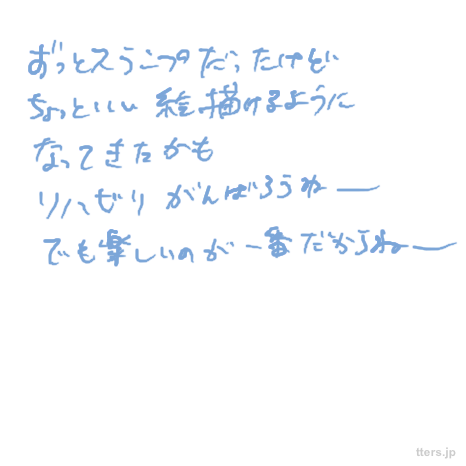 ずっとスランプだったけど
ちょっといい絵描けるように
なってきたかも
リハビリがんばろうねー
でも楽しいのが一番だからねー
tters.jp